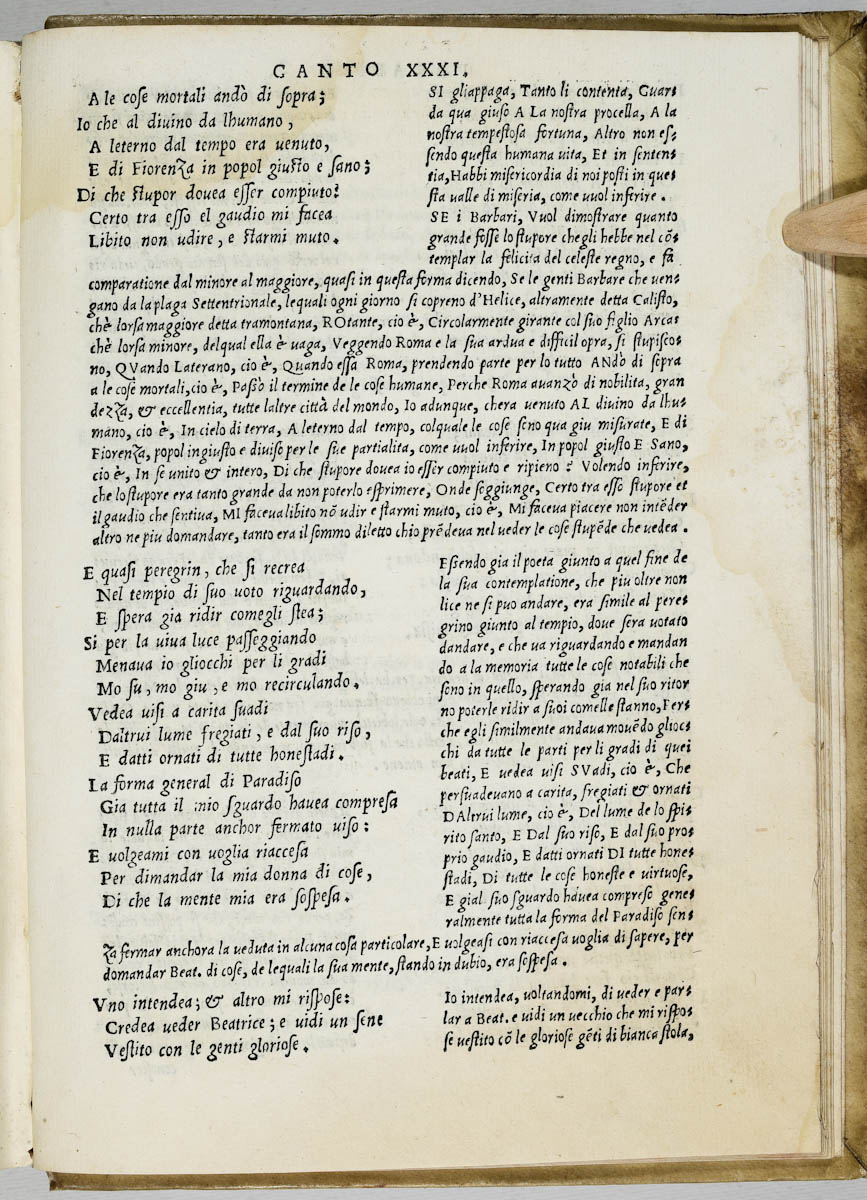 CANTO XXXI.
A le cose mortali andò di sopra;
Io che al diuino da lhumano,
A leterno dal tempo era uenuto,
E di Fiorenza in popol giusto e sano;
Di che stupor douea esser compiuto?
Certo tra esso el gaudio mi facea
Libito non udire, e starmi muto.
SI gliappaga, Tanto li contenta, Guar-
da qua giuso A LA nostra procella, A la
nostra tempestosa fortuna, Altro non es-
sendo questa humana uita, Et in senten-
tia, Habbi misericordia di noi posti in que-
sta ualle di miseria, come uuol inferire.
SE i Barbari, Vuol dimostrare quanto
grande fosse lo stupore chegli hebbe nel cõ-
templar la felicita del celeste regno, e fa
comparatione dal minore al maggiore, quasi in questa forma dicendo, Se le genti Barbare che uen-
gano da la plaga Settentrionale, lequali ogni giorno si copreno d'Helice, altramente detta Calisto,
chè lorsa maggiore detta tramontana, ROtante, cio è, Circolarmente girante col suo figlio Arcas
chè lorsa minore, delqual ella è uaga, Veggendo Roma e la sua ardua e difficil opra, si stupisco-
no, QVando Laterano, cio è, Quando essa Roma, prendendo parte per lo tutto ANdò di sopra
a le cose mortali, cio è, Passò il termine de le cose humane, Perche Roma auanzò di nobilita, gran
dezza, & eccellentia, tutte laltre città del mondo, Io adunque, chera uenuto AL diuino da lhu-
mano, cio è, In cielo di terra, A leterno dal tempo, colquale le cose seno qua giu misurate, E di
Fiorenza, popol ingiusto e diuiso per le sue partialita, come uuol inferire, In popol giusto E Sano,
cio è, In se unito & intero, Di che stupore douea io esser compiuto e ripieno? Volendo inferire,
che lo stupore era tanto grande da non poterlo esprimere, Onde seggiunge, Certo tra esso stupore et
il gaudio che sentiua, MI faceua libito nõ udir e starmi muto, cio è, Mi faceua piacere non intẽder
altro ne piu domandare, tanto era il sommo diletto chio prẽdeua nel ueder le cose stupẽde che uedea.
E quasi peregrin, che si recrea
Nel tempio di suo uoto riguardando,
E spera gia ridir comegli stea;
Si per la uiua luce passeggiando
Menaua io gliocchi per li gradi
Mo su, mo giu, e mo recirculando.
Vedea uisi a carita suadi
Daltrui lume fregiati, e dal suo riso,
E datti ornati di tutte honestadi.
La forma general di Paradiso
Gia tutta il mio sguardo hauea compresa
In nulla parte anchor fermato uiso:
E uolgeami con uoglia riaccesa
Per dimandar la mia donna di cose,
Di che la mente mia era sospesa.
Essendo gia il poeta giunto a quel fine de
la sua contemplatione, che piu oltre non
lice ne si puo andare, era simile al pere-
grino giunto al tempio, doue sera uotato
dandare, e che ua riguardando e mandan
do a la memoria tutte le cose notabili che
seno in quello, sperando gia nel suo ritor
no poterle ridir a suoi comelle stanno, Per-
che egli similmente andaua mouẽdo glioc-
chi da tutte le parti per li gradi di quei
beati, E uedea uisi SVadi, cio è, Che
persuadeuano a carita, fregiati & ornati
DAltrui lume, cio è, Del lume de lo spi-
rito santo, E Dal suo riso, E dal suo pro-
prio gaudio, E datti ornati DI tutte hone-
stadi, Di tutte le cose honeste e uirtuose,
E gial suo sguardo hauea compreso gene-
ralmente tutta la forma del Paradiso sen-
za fermar anchora la ueduta in alcuna cosa particolare, E uolgeasi con riaccesa uoglia di sapere, per
domandar Beat. di cose, de lequali la sua mente, stando in dubio, era sospesa.
Vno intendea; & altro mi rispose:
Credea ueder Beatrice; e uidi un sene
Vestito con le genti gloriose.
Io intendea, uoltandomi, di ueder e par-
lar a Beat. e uidi un uecchio che mi rispo-
se uestito cõ le gloriose gẽti di bianca stola,